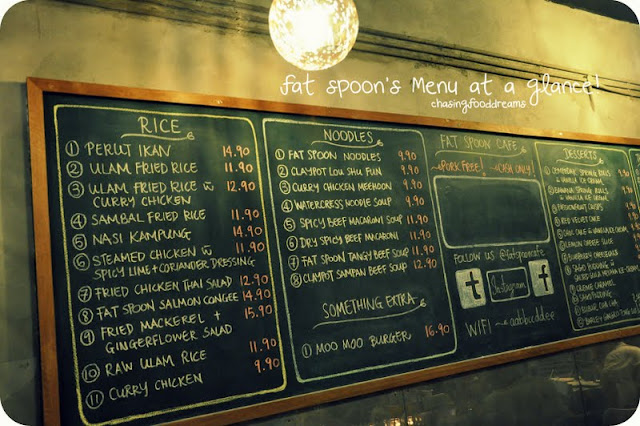 fat spoon's Menu at a glance!
chasingfooddreams
RICE
① PERUT IKAN 14.90
② ULAM FRIED RICE 11.90
③ ULAM FRIED RICE W 12.90
CURRY CHICKEN
④ SAMBAL FRIED RICE 11.90
⑤ NASI KAMPUNG 14.90
⑥ STEAMED CHICKEN W 11.90
SPICY LIME + CORIANDER DRESSING
⑦ FRIED CHICKEN THAI SALAD 12.90
⑧ FAT SPOON SALMON CONGEE 14.90
⑨ FRIED MACKEREL + 15.90
GINGERFLOWER SALAD
⑩ RAW ULAM RICE 11.90
⑪ CURRY CHICKEN 9.90
NOODLES
① FAT SPOON NOODLES 9.90
② CLAYPOT LOU SHU FUN 9.90
③ CURRY CHICKEN MEEHOON 9.90
④ WATERCRESS NOODLE SOUP 9.90
⑤ SPICY BEEF MACARONI SOUP 11.90
⑥ DRY SPICY BEEF MACARONI 11.90
⑦ FAT SPOON TANGY BEEF SOUP 11.90
⑧ CLAYPOT SAMPAN BEEF SOUP 12.90
SOMETHING EXTRA
① MOO MOO BURGER 16.90
FAT SPOON CAFE
PORK FREE! CASH ONLY!
FOLLOW US @fatspooncafe
t Instagram f
WIFI ~ aabbuddee
DESSERTS
& VANILLA ICE CREAM
BANANA SPRING ROLLS
& VANILLA ICE CREAM
RED VELVET CAKE
LEMON CHEESE SLICE
BLUEBERRY CHEESECAKE
CREME CARAMEL